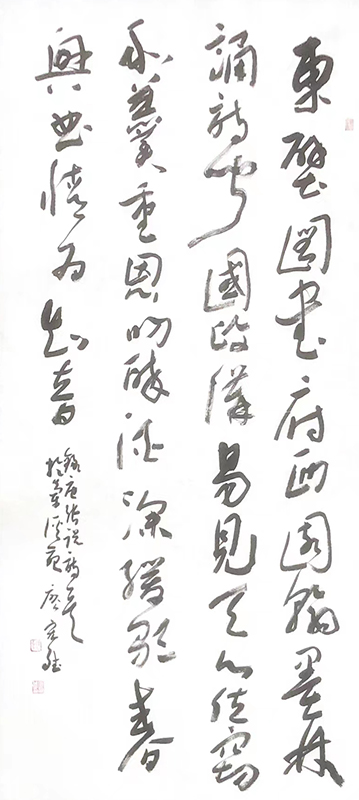 東壁圖書府西園翰墨林
誦詩聞國政講易見天心位竊
和羹重恩叨醉酒深緩歌春
興曲情为知音
錄唐張說詩